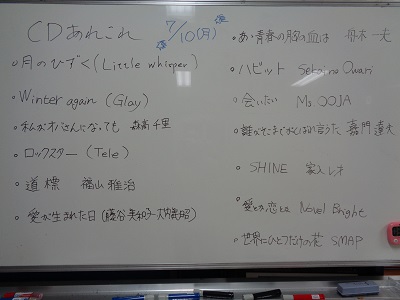 CDあれこれ 7/10(月)
・月のひずく(Little whisper)
・Winter again (Glay)
・私がオバさんになっても 森高千里
・ロックスター(Tele)
・道標 福山雅治
・愛が生まれた日(藤谷美和子・大内義昭)
・あゝ青春の胸の血は 舟木一夫
・ハビット Sekaino Owari
・会いたい Ms OOJA
・誰がそこまでせぇ言うた 嘉門達夫
・SHINE 家入レオ
・愛とか恋とか Novel Bright
・世界にひとつだけの花 SMAP